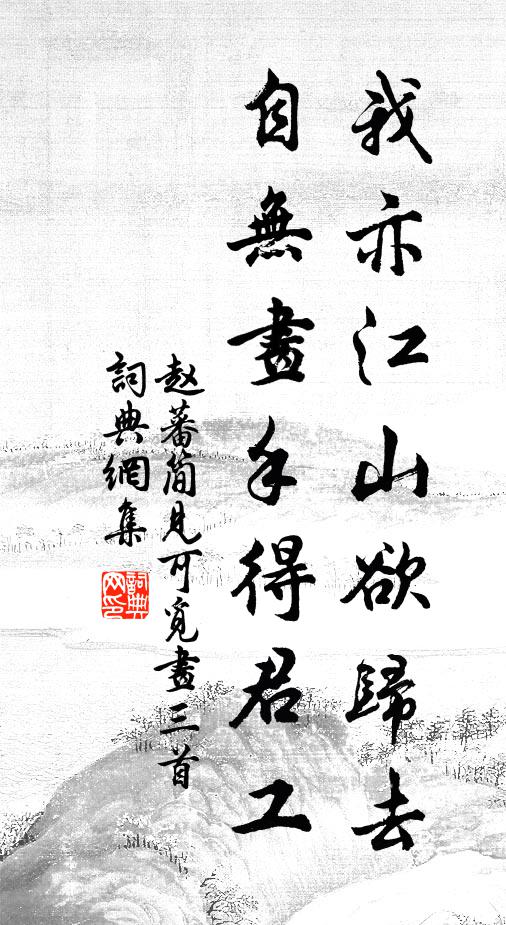 我亦江山欲歸去
自無畫手得君工
赵蕃簡見可覓畫三首
詞典網集
詞典网印